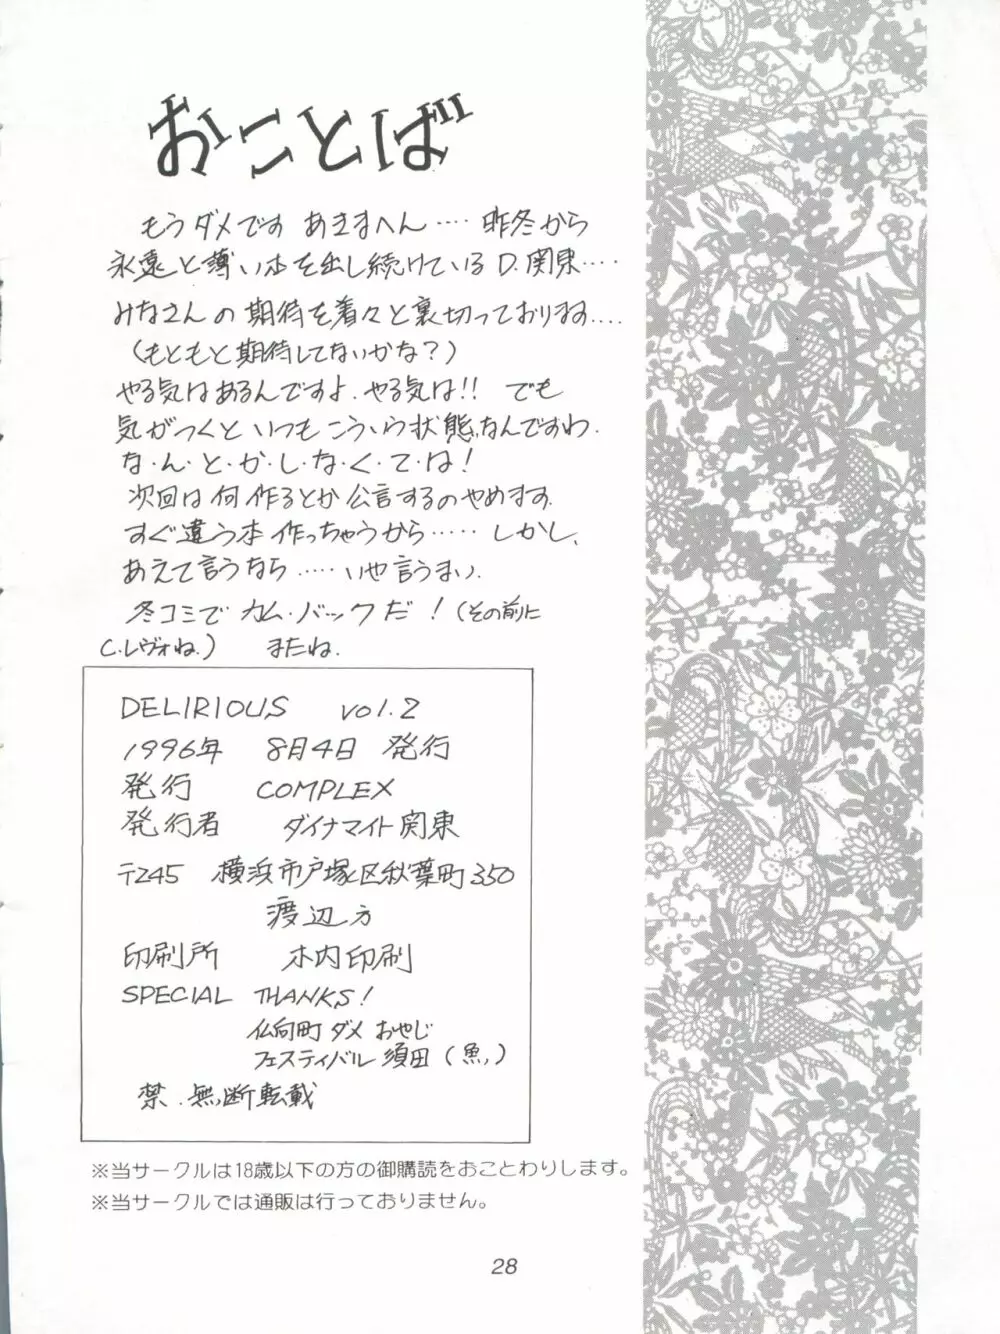 おことば
もうダメです あきまへん‥‥ 昨冬から
永遠と薄い本を出し続けているD.関東‥‥
みなさんの期待を着々と裏切っております‥‥
(もともと期待してないかな?)
やる気はあるんですよ.やる気は!! でも
気がつくといつもこういう状態なんですわ.
な・ん・と・か・し・な・く・て・は!
次回は何作るとか公言するのやめます.
すぐ違う本作っちゃうから‥‥‥ しかし、
あえて言うなら‥‥‥いや言うまい.
冬コミでカム・バックだ!(その前に
C.レヴォね.) またね.
DELIRIOUS vol.2
1996年 8月4日 発行
発行 COMPLEX
発行者 ダイナマイト関東
〒245 横浜市戸塚区秋葉町350
渡辺方
印刷所 木内印刷
SPECIAL THANKS!
仏向町 ダメ おやじ
フェスティバル 須田(魚)
禁.無断転載
※当サークルは18歳以下の方の御購読をおことわりします。
※当サークルでは通販は行っておりません。
28